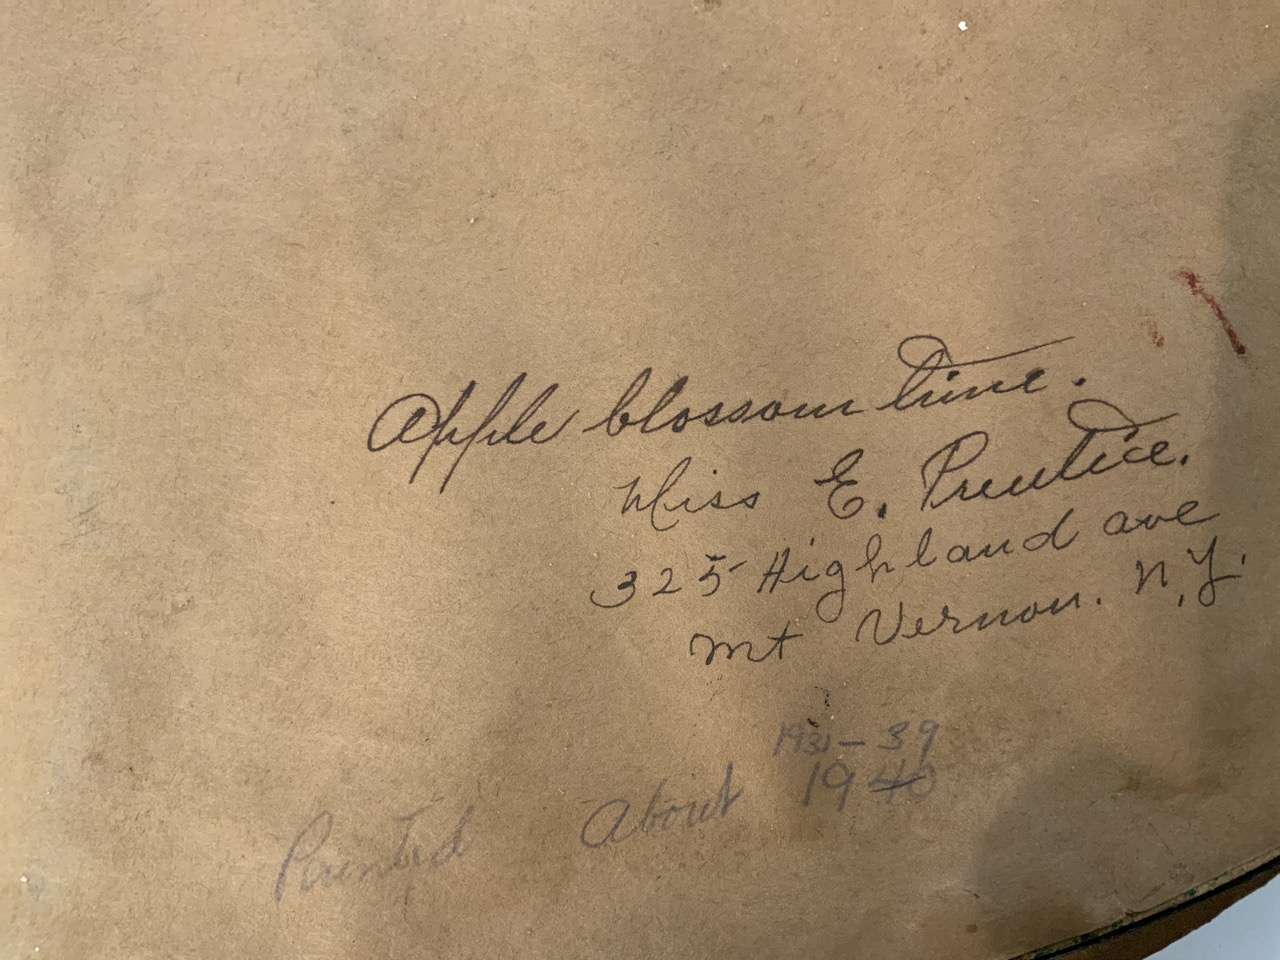 Apple blossom time.
Miss E. Prentice.
325 Highland ave
Mt Vernon. N.Y.
1931-39
Painted About 1940